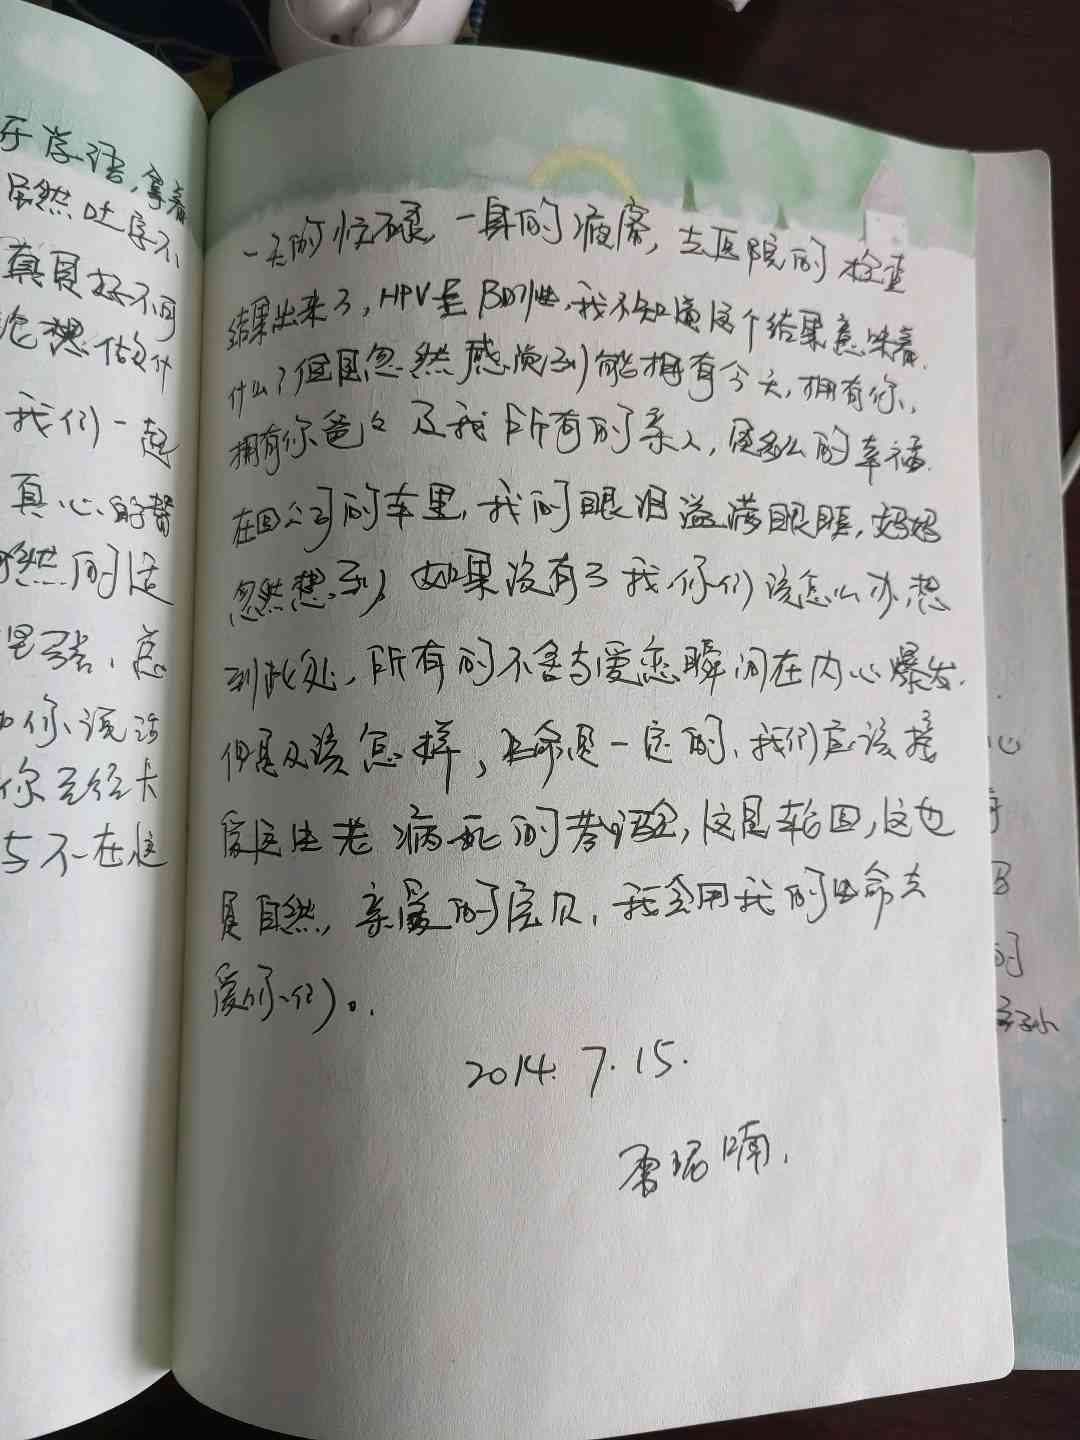 牙学语，拿着
虽然吐字不
真是好不可
论想做什
我们一起
真心的替
然的话
坚强、
你该活
你已经长
与不在这
一天的忙碌，一身的疲惫，去医院的检查
结果出来了，HPV是阳性，我不知道这个结果意味着
什么？但是忽然感觉到能拥有今天，拥有你，
拥有你爸々及我所有的亲人，是多么的幸福.
在回公司的车里，我的眼泪溢满眼眶，妈妈
忽然想到，如果没有了我你们该怎么办，想
到此处，所有的不舍与爱恋瞬间在内心爆发.
但是又该怎样，生命是一定的、我们应该接
受这生老病死的考验，这是轮回，这也
是自然，亲爱的宝贝，我会用我的生命去
爱你们。
2014. 7. 15.